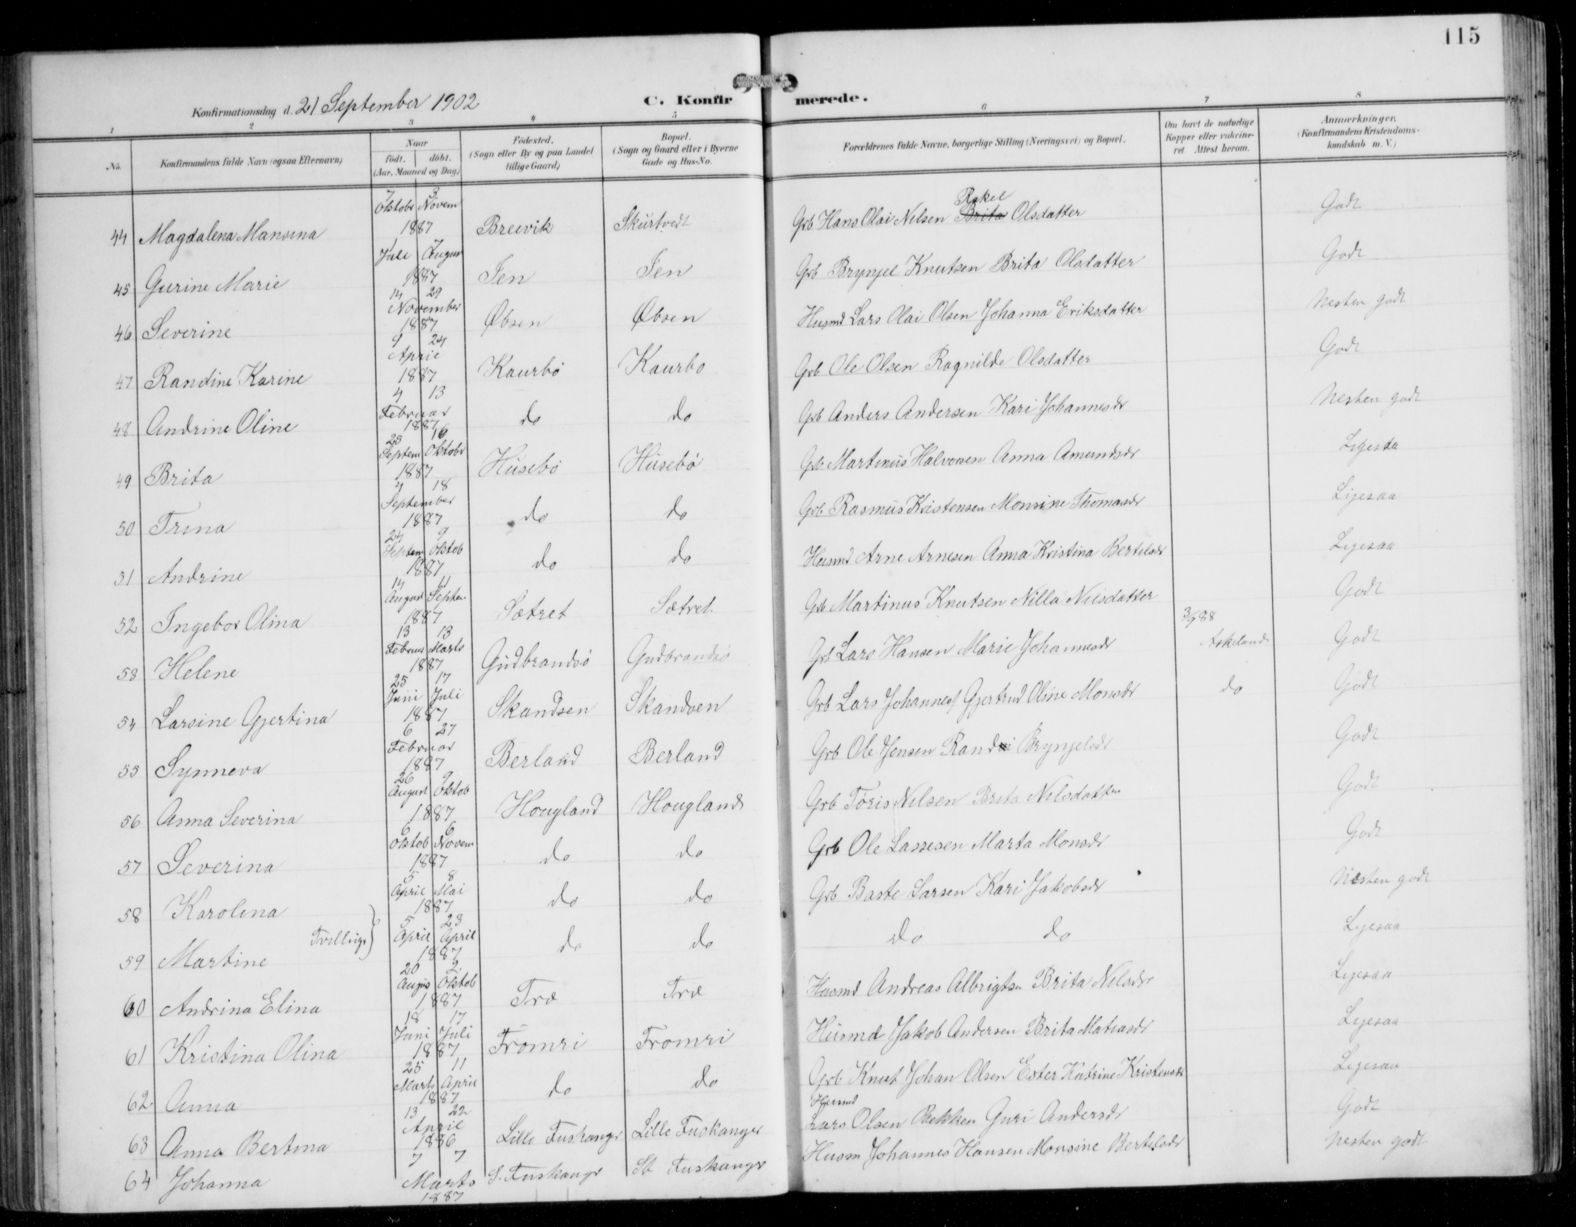 115
Konfirmationsdag d. 21 September 1902
C. Konfirmerede.
1 2 3 4 5 6 7 8
No. Konfirmandens fulde Navn (ogsaa Efternavn) Naar født. døbt. (Aar, Maaned og Dag) Fødested. (Sogn eller By og paa Landet tillige Gaard) Bopæl. (Sogn og Gaard eller i Byerne Gade og Hus-No. Forældrenes fulde Navne, borgerlige Stilling (Næringsvei) og Bopæl. Om havt de naturlige Kopper eller vaccineret. Attest herom. Anmerkninger. (Konfirmandens Kristendomskundskab m. V.)
44 Magdalena Mansena 7 3 Oktobr Novem 1887 Breivik Skurtvedt Grb Hans Olai Nilsen Brita Rakel Olsdatter Godt
45 Gurine Marie Juli August 1887 Ien Ien Grb Brynjel Knutsen Brita Olsdatter Godt
46 Severine 14 29 November 1887 Øbsen Øbsen Husmd Lars Olai Olsen Johanna Eriksdatter Nesten godt
47 Randine Karine 9 24 April 1887 Kaurbø Kaurbo Grb Ole Olsen Ragnilde Olsdatter Godt
48 Andrine Oline 4 13 Februar 1887 do do Grb Anders Andersen Kari Johannesdr Nesten godt
49 Brita 25 16 Septem Oktobr 1887 Husebø Husebø Grb Martinus Halvorsen Anna Amundsdr Ligesaa
50 Trina 4 18 September 1887 do do Grb Rasmus Kristensen Monsine Thomasdr Ligesaa
51 Andrine 24 9 Septem Oktob 1887 do do Husmd Arne Arnesen Anna Kristina Bertelsdr Ligesaa
52 Ingebor Olina 14 11 August Septem 1887 Sætret Sætret Grb Martinus Knutsen Nilla Nilsdatter Godt
53 Helene 13 13 Februar Marts 1887 Gudbrandsø Gudbrandsø Grb Lars Hansen Marie Johannesdr 3/9 88 Askeland Godt
54 Larsine Gjertina 25 17 Juni Juli 1887 Skandsen Skandsen Grb Lars Johannes Gjertrud Oline Monsdr do Godt
55 Synneva 6 27 Februar 1887 Berland Berland Grb Ole Jensen Randi Brynjelsdr Godt
56 Anna Severina 26 9 August Oktob 1887 Hougland Hougland Grb Tøris Nilsen Brita Nilsdatter Godt
57 Severina 6 6 Oktob Novem 1887 do do Grb Ole Lassesen Marta Monsdr Godt
58 Karolina 5 8 April Mai 1887 do do Grb Baste Larsen Kari Jakobsdr Nesten godt
Tvillinge
59 Martine 5 23 April April 1887 do do do do Ligesaa
60 Andrina Elina 20 2 Augus Oktob 1887 Træ Træ Husmd Andreas Albrigtsen Brita Nilsdr Ligesaa
61 Kristina Olina 18 17 Juni Juli 1887 Fromri Fromri Husmd Jakob Andersen Brita Matiasdr Ligesaa
62 Anna 25 11 Marts April 1887 do do Grb Knut Johan Olsen Ester Katrine Kristensdr Ligesaa
63 Anna Bertina 13 22 April 1886 Lille Fuskanger Lille Fuskanger Husmd Lars Olsen Bekken Guri Andersdr Godt
64 Johanna 7 7 Marts 1887 S. Fuskangr St Fuskangr Husm Johannes Hansen Monsine Bertelsdr Nesten godt